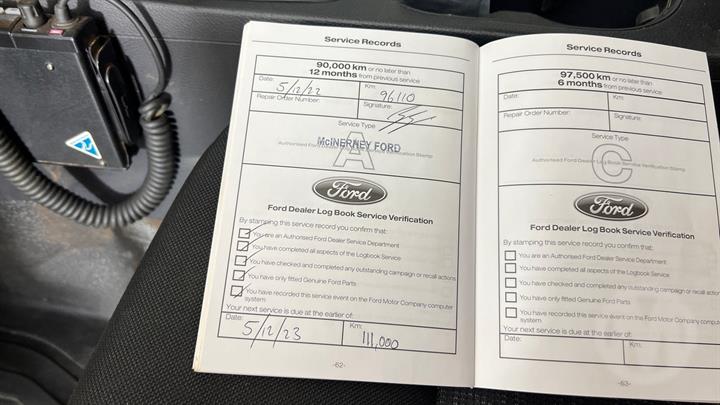 Service Records
90,000 km or no later than
12 months from previous service
Date: 5/12/22
Km: 96110
Repair Order Number:
Signature:
Service Type
A
McINERNEY FORD
Authorised Ford Dealer Log Book Service Verification Stamp
Ford
Ford Dealer Log Book Service Verification
By stamping this service record you confirm that:
You are an Authorised Ford Dealer Service Department
You have completed all aspects of the Logbook Service
You have checked and completed any outstanding campaign or recall actions
You have only fitted Genuine Ford Parts
You have recorded this service event on the Ford Motor Company computer
system
Your next service is due at the earlier of:
Date: 5/12/23
Km: 111,000
-62-
Service Records
97,500 km or no later than
6 months from previous service
Date:
Km:
Repair Order Number:
Signature:
Service Type
C
Authorised Ford Dealer Log Book Service Verification Stamp
Ford
Ford Dealer Log Book Service Verification
By stamping this service record you confirm that:
You are an Authorised Ford Dealer Service Department
You have completed all aspects of the Logbook Service
You have checked and completed any outstanding campaign or recall action
You have only fitted Genuine Ford Parts
You have recorded this service event on the Ford Motor Company compu
system
Your next service is due at the earlier of:
Date:
Km:
-63-